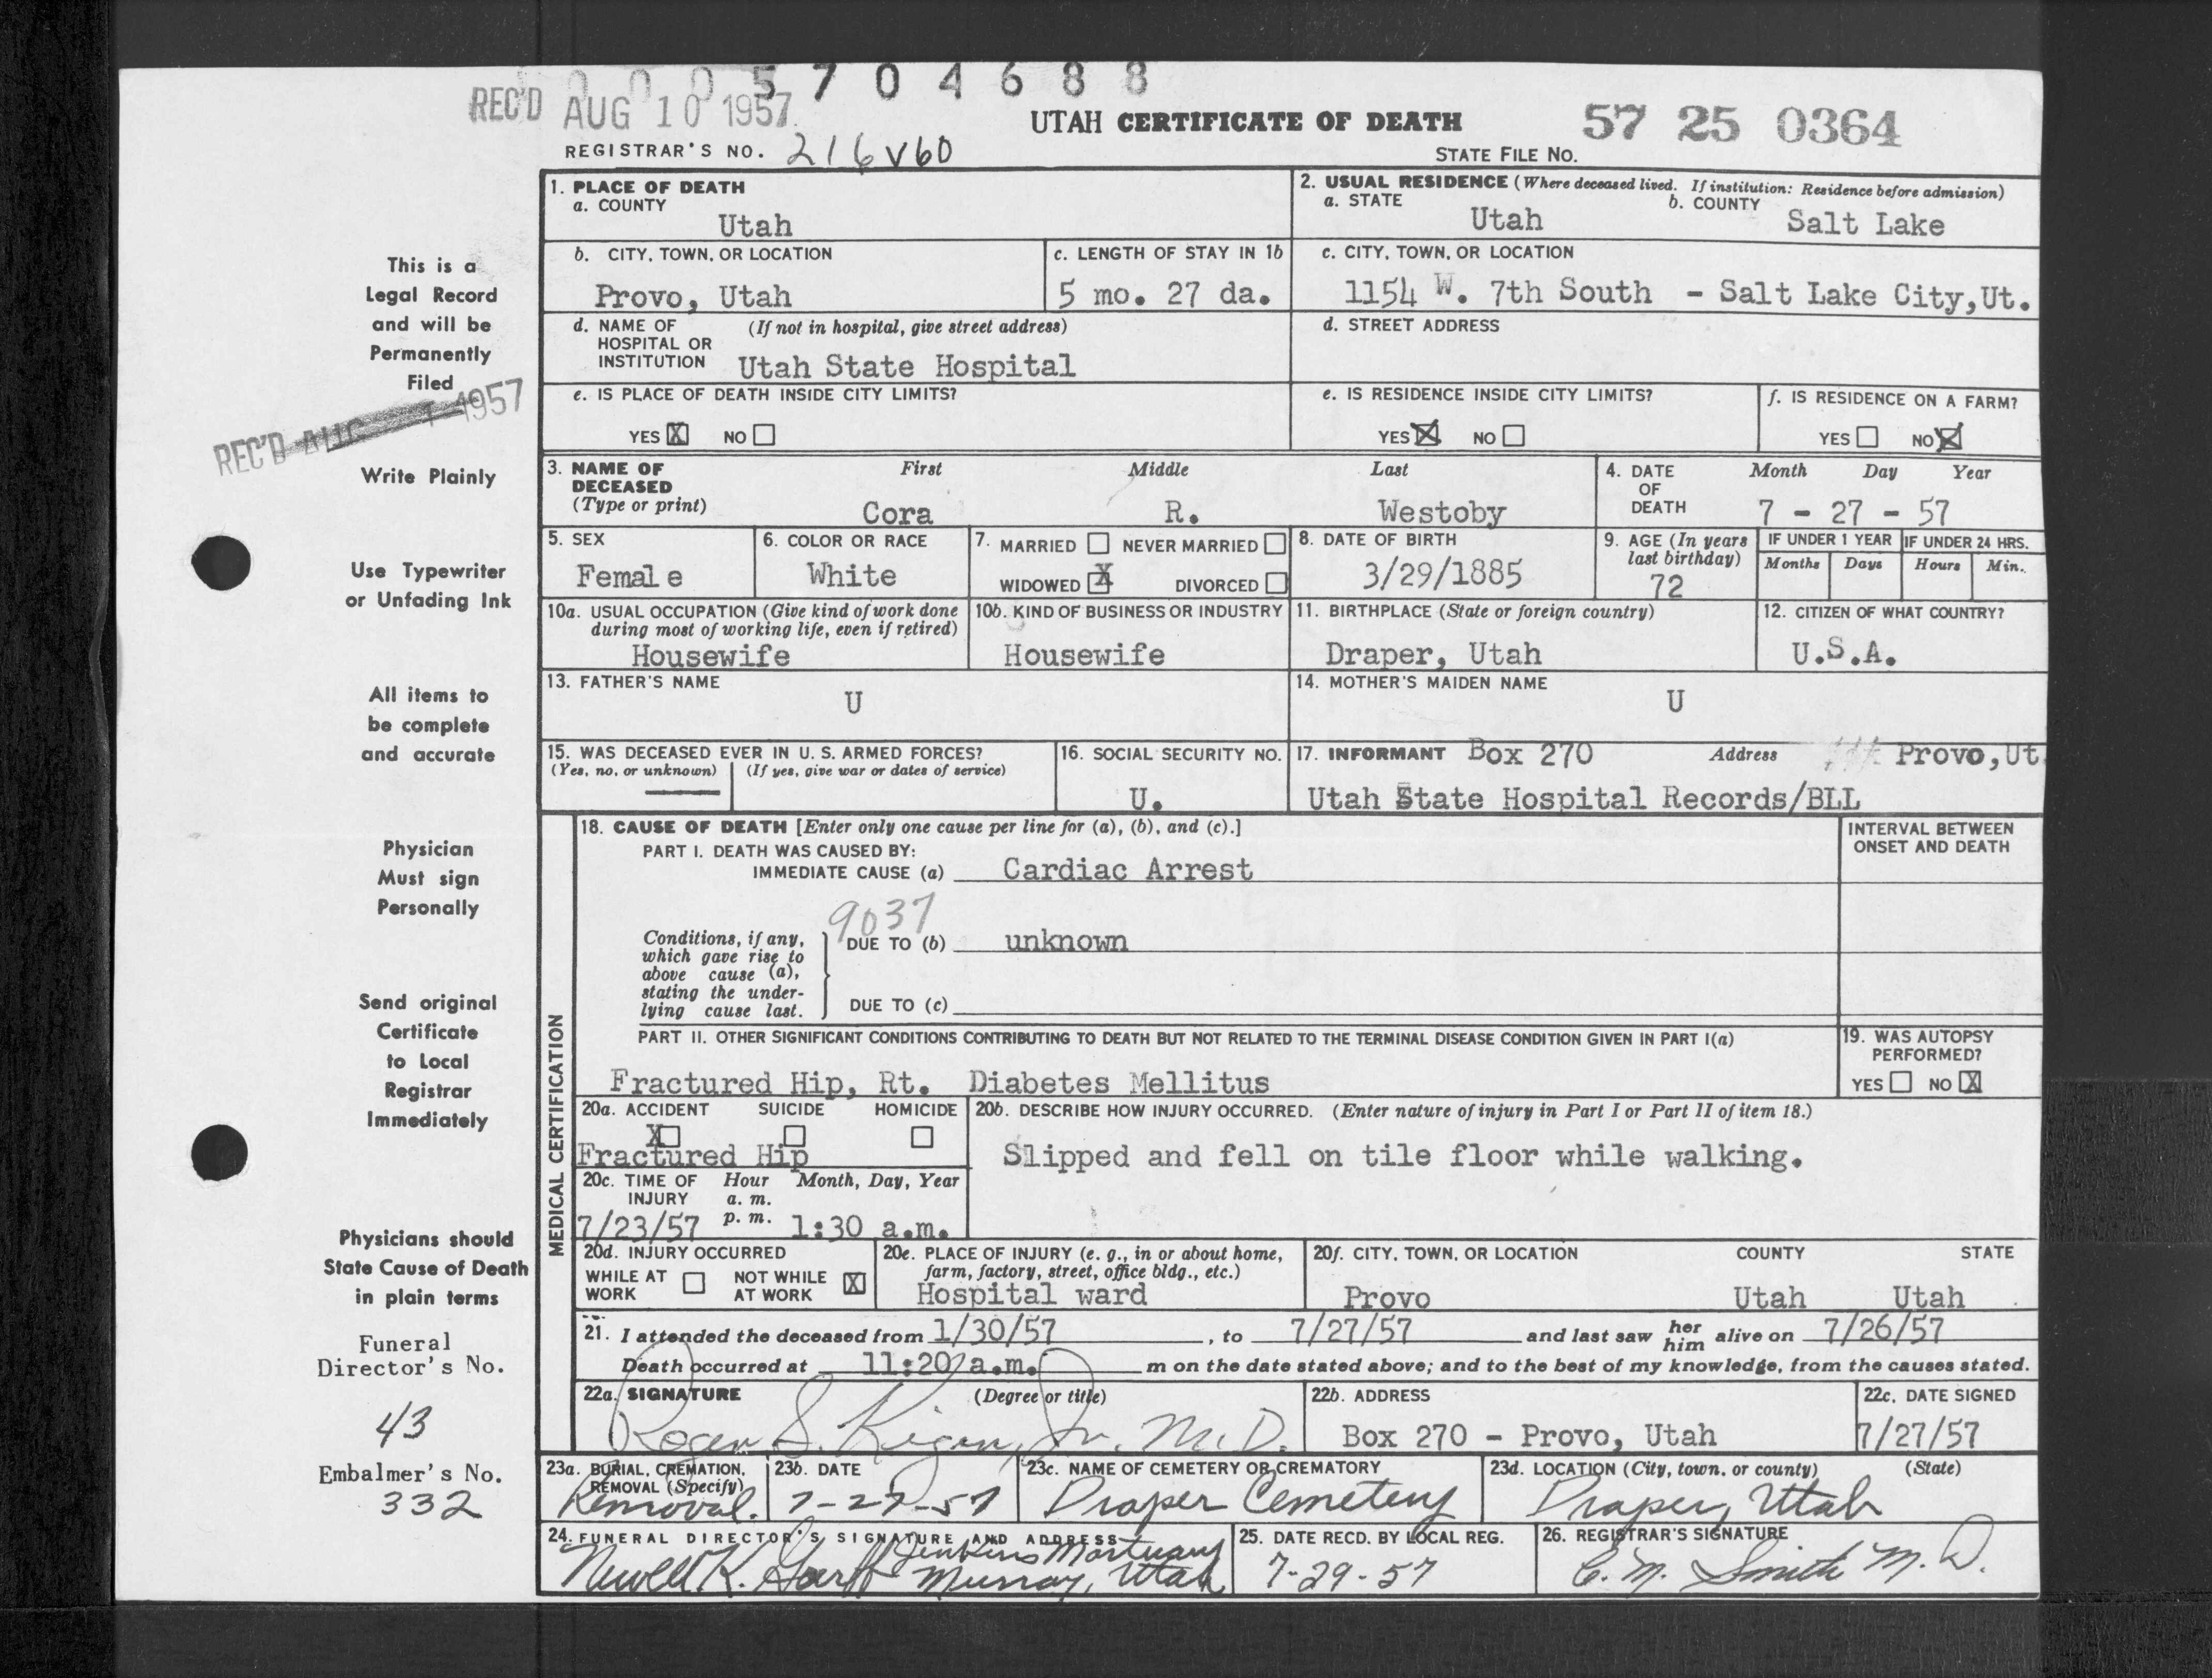 0 0 0 5 7 0 4 6 8 8
REC'D AUG 10 1957
UTAH CERTIFICATE OF DEATH
57 25 0364
REGISTRAR'S NO. 216V60
STATE FILE NO.
This is a
Legal Record
and will be
Permanently
Filed
REC'D AUG 1 1957
Write Plainly
Use Typewriter
or Unfading Ink
All items to
be complete
and accurate
Physician
Must sign
Personally
Send original
Certificate
to Local
Registrar
Immediately
Physicians should
State Cause of Death
in plain terms
Funeral
Director's No.
43
Embalmer's No.
332
1. PLACE OF DEATH
a. COUNTY
Utah
2. USUAL RESIDENCE (Where deceased lived. If institution: Residence before admission)
a. STATE b. COUNTY
Utah Salt Lake
b. CITY, TOWN, OR LOCATION
Provo, Utah
c. LENGTH OF STAY IN 1b
5 mo. 27 da.
c. CITY, TOWN, OR LOCATION
1154 W. 7th South - Salt Lake City, Ut.
d. NAME OF (If not in hospital, give street address)
HOSPITAL OR
INSTITUTION Utah State Hospital
d. STREET ADDRESS
e. IS PLACE OF DEATH INSIDE CITY LIMITS?
YES X NO
e. IS RESIDENCE INSIDE CITY LIMITS?
YES X NO
f. IS RESIDENCE ON A FARM?
YES NO X
3. NAME OF DECEASED (Type or print)
First Middle Last
Cora R. Westoby
4. DATE OF DEATH
Month Day Year
7 - 27 - 57
5. SEX
Female
6. COLOR OR RACE
White
7. MARRIED NEVER MARRIED
WIDOWED X DIVORCED
8. DATE OF BIRTH
3/29/1885
9. AGE (In years last birthday)
72
IF UNDER 1 YEAR
Months Days
IF UNDER 24 HRS.
Hours Min.
10a. USUAL OCCUPATION (Give kind of work done
during most of working life, even if retired)
Housewife
10b. KIND OF BUSINESS OR INDUSTRY
Housewife
11. BIRTHPLACE (State or foreign country)
Draper, Utah
12. CITIZEN OF WHAT COUNTRY?
U.S.A.
13. FATHER'S NAME
U
14. MOTHER'S MAIDEN NAME
U
15. WAS DECEASED EVER IN U. S. ARMED FORCES?
(Yes, no, or unknown) (If yes, give war or dates of service)
16. SOCIAL SECURITY NO.
U.
17. INFORMANT Box 270 Address Provo, Ut.
Utah State Hospital Records/BLL
MEDICAL CERTIFICATION
18. CAUSE OF DEATH [Enter only one cause per line for (a), (b), and (c).]
INTERVAL BETWEEN
ONSET AND DEATH
PART I. DEATH WAS CAUSED BY:
IMMEDIATE CAUSE (a) Cardiac Arrest
9037
Conditions, if any,
which gave rise to
above cause (a),
stating the under-
lying cause last.
DUE TO (b) unknown
DUE TO (c)
PART II. OTHER SIGNIFICANT CONDITIONS CONTRIBUTING TO DEATH BUT NOT RELATED TO THE TERMINAL DISEASE CONDITION GIVEN IN PART I(a)
Fractured Hip, Rt. Diabetes Mellitus
19. WAS AUTOPSY
PERFORMED?
YES NO X
20a. ACCIDENT SUICIDE HOMICIDE
X
Fractured Hip
20b. DESCRIBE HOW INJURY OCCURRED. (Enter nature of injury in Part I or Part II of item 18.)
Slipped and fell on tile floor while walking.
20c. TIME OF INJURY Hour Month, Day, Year
a. m.
p. m.
7/23/57 1:30 a.m.
20d. INJURY OCCURRED
WHILE AT WORK NOT WHILE AT WORK X
20e. PLACE OF INJURY (e. g., in or about home,
farm, factory, street, office bldg., etc.)
Hospital ward
20f. CITY, TOWN, OR LOCATION COUNTY STATE
Provo Utah Utah
21. I attended the deceased from 1/30/57, to 7/27/57 and last saw her him alive on 7/26/57
Death occurred at 11:20 a.m. m on the date stated above; and to the best of my knowledge, from the causes stated.
22a. SIGNATURE (Degree or title)
Roger S. Kigan, Jr. M.D.
22b. ADDRESS
Box 270 - Provo, Utah
22c. DATE SIGNED
7/27/57
23a. BURIAL, CREMATION,
REMOVAL (Specify)
Removal.
23b. DATE
7-27-57
23c. NAME OF CEMETERY OR CREMATORY
Draper Cemetery
23d. LOCATION (City, town, or county) (State)
Draper, Utah
24. FUNERAL DIRECTOR'S SIGNATURE AND ADDRESS
Newell K. Garff Jenkins Mortuary
Murray, Utah
25. DATE RECD. BY LOCAL REG.
7-29-57
26. REGISTRAR'S SIGNATURE
C. M. Smith M. D.